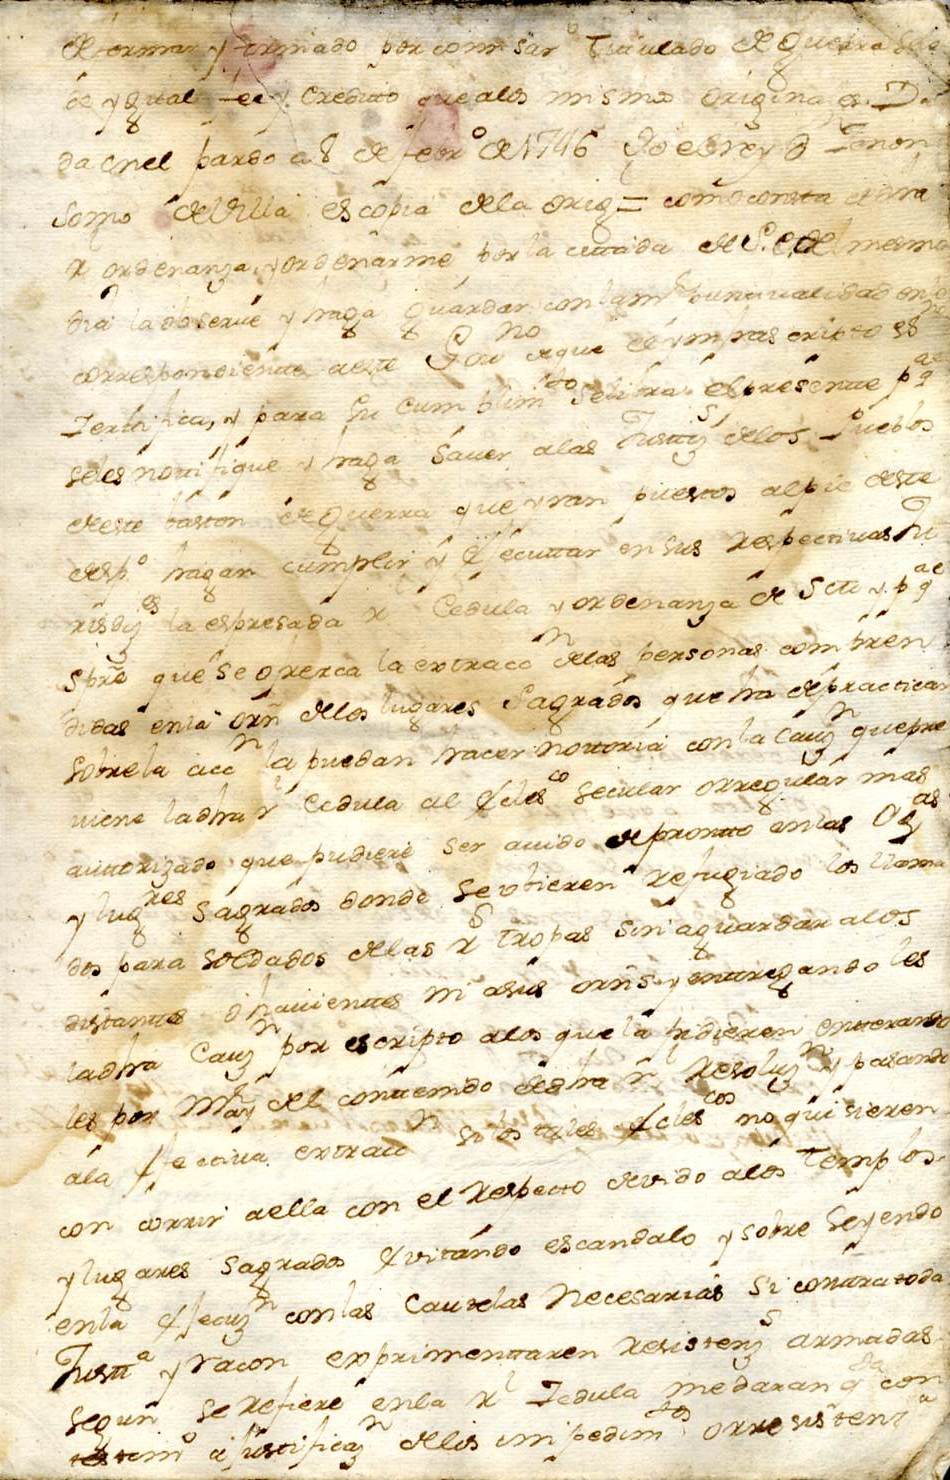 de formar y firmado por comisar^o titulado de guerra se le
de ygual fee y credito que a los mismos originales. Da
da en el pardo a 8 de febr^o de 1746 Yo el Rey D. Zenon
somo devilla es copia de la orig = como consta de dha
R ordenanza, y ordenarme por la cittada de S.E. del mesmo
dia la observe y haga guardar con la m^r puntualidad en lo
correspondiente a este Gov^no de que el ymfrascripto es^no
Zertifica, y para su cumplim^to se libra el presente p^a q^e
se les nottifique y haga saver a las Justiz^s de los Pueblos
de este baston de guerra que yran puestos al pie de este
desp^o hagan cumplir y ejecuttar en sus respectivas Ju
risdiz^es la espresada R^l Cedula y ordenanza de S.M. y p^a q^e
spre que se ofrezca la extracc^n de las personas compren
didas en la orñ de los lugares Sagrados que ha de practicar
sobre la acc^n la puedan hacer nottoria con la Cauz^n que pre
viene la dha R^l Cedula al Ecles^co secular o rregular mas
auttorizado que pudiere ser avido de prontto en las Ygl^as
y lug^res Sagrados donde se vbieren refugiado los llama
dos para soldados de las R^s tropas sin aguardar a los
distanttes o havientes ni a sus orñs y enttregando les
la dha Cauz^n por escripto a los que la pidieren entterando
les por M^r del conttenido de dha R^l Resoluz^n y pasando
a la efectiva extracc^n si los tales Ecles^cos no quisieren
con currir a ella con el respecto devido a los Templos
y lugares Sagrados evitando escandalo y sobre seyendo
en la ejecuz^n con las Cautelas necesarias si contra toda
Justt^a y racon exprimenttaren resistenz^s armadas
segun se refiere en la R^l Zedula me daran q^ta con
testim^o o justificaz^n de los impedim^tos o rresistenz^a